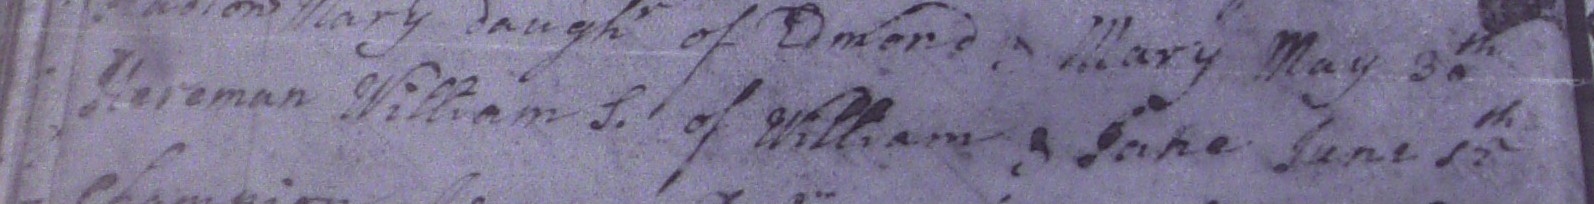 Mary Daughr of Edmond & Mary May 30th
Hereman William S. of William & Jane June 5th
Champion